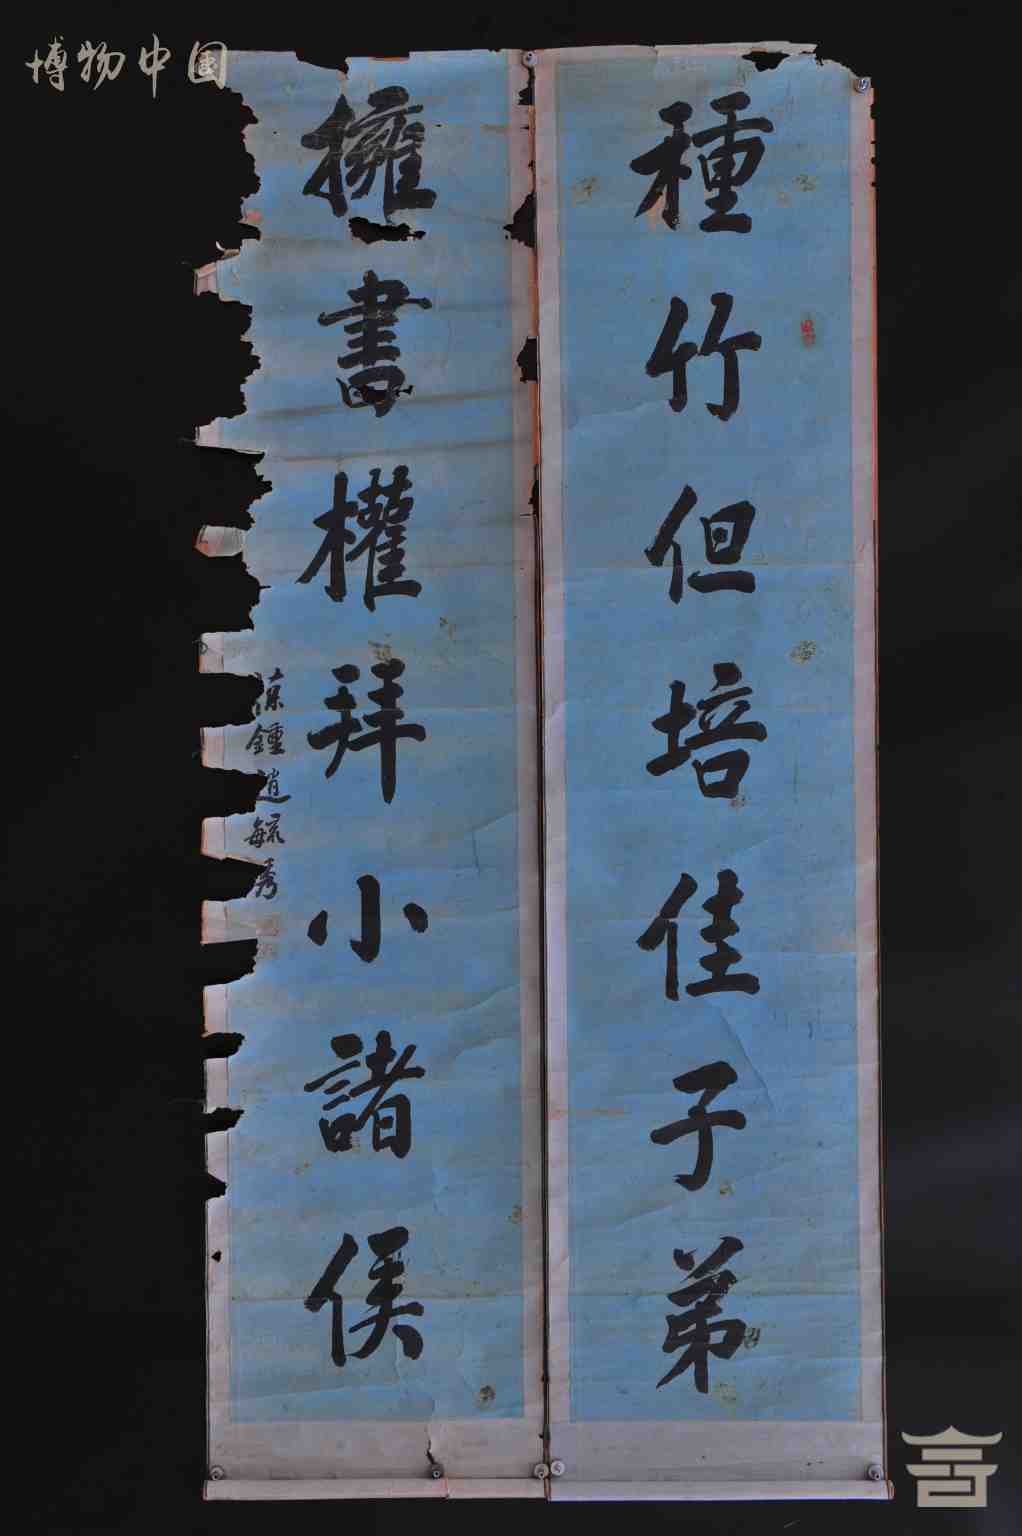 博物中国
種竹但培佳子弟
擁書權拜小諸侯
葆鍾趙毓秀